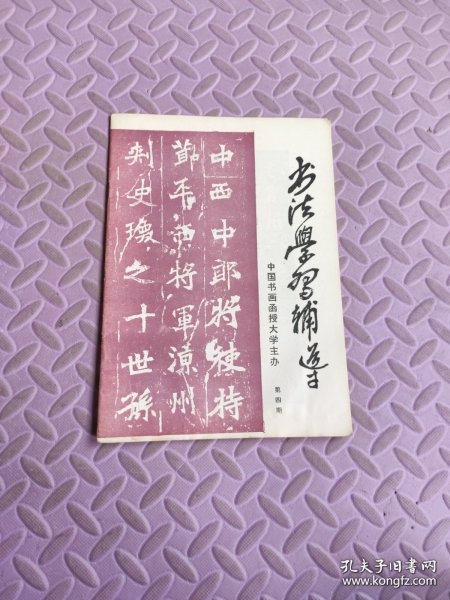 书法學習辅导
中国书画函授大学主办
第四期
中西中郎将使持
節平西将軍涼州
刺史瑍之十世孫
孔夫子旧书网
www.kongfz.com